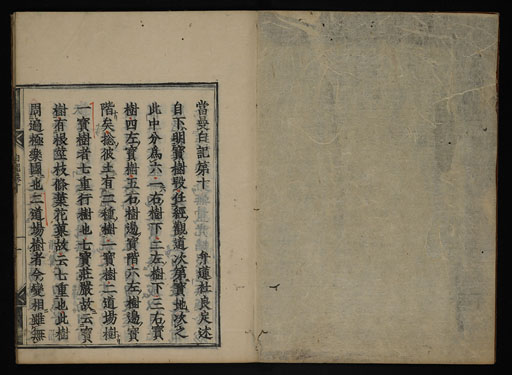 當曼白記第十
弁蓮社良定述
自下明寶樹段任經觀道次第寶地次之
此中分爲六一右樹下二左樹下三右寶
樹四左寶樹五右樹邊寶階六左樹邊寶
階矣捴彼土有二種樹一寶樹二道場樹
一寶樹者七重行樹也七寶莊嚴故云寶
樹有根莖枝條葉花菓故云七重也此樹
周遍極樂國也二道場樹者今變相雖無